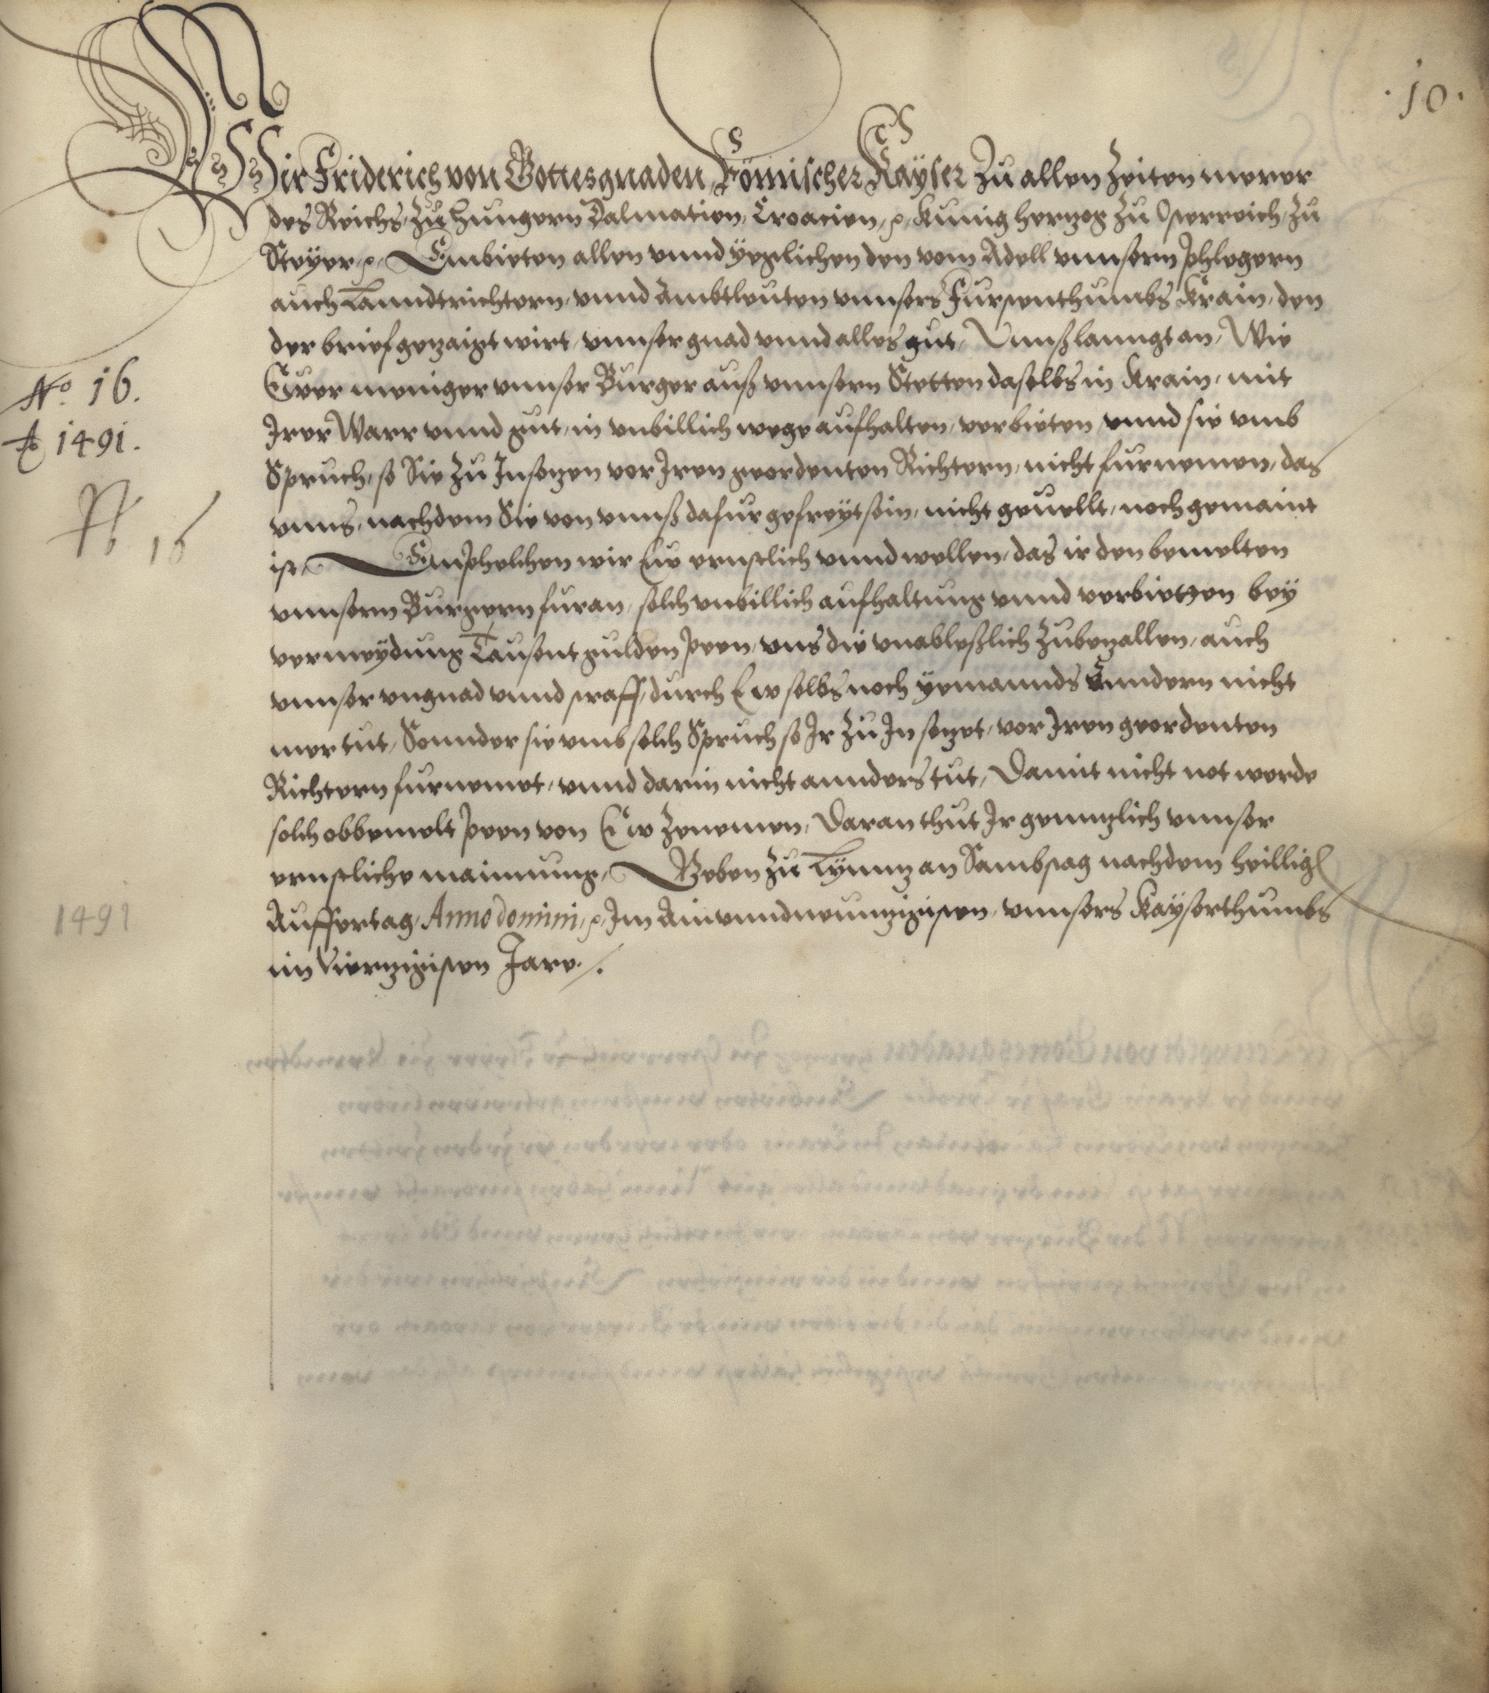 .10.
Wir Friderich von Gottes gnaden, Römischer Kayser zu allen Zeiten merer
des Reichs, zu Hungern, Dalmatien, Croacien, ꝛc. Kunig, Herzog zu Osterreich, zu
Steyer, ꝛc. Embieten allen vnnd yeglichen den vom Adell vnnsern Phlegern
auch Lanndtrichtern, vnnd Ambtleuten vnnsers Furstenthumbs Krain, den
der brief gezaigt wirt, vnnser gnad vnnd alles gut, Vnnß lanngt an, Wie
No. 16.
Ewer meniger vnnser Burger auß vnnsern Stetten daselbs in Krain, mit
Irer Warr vnnd gut, in vnbillich wege aufhalten, verbieten, vnnd sie vmb
Ao 1491.
Spruch, so Sie zu Inn setzen vor Iren geordenten Richtern, nicht furnemen, das
vnns, nachdem Sie von vnnß dafur gefreyt sein, nicht geuellt, noch gemaint
16
ist, Emphelchen wir Ew ernstlich vnnd wellen, das ir den bemelten
vnnsern Burgern furan, solch vnbillich aufhaltung vnnd verbietzen bey
vermeydung Tausent gulden peen, vns die vnableßlich zubezallen, auch
vnnser vngnad vnnd straff, durch Ew selbs noch yemannds anndern nicht
mer tut, Sonnder sie vmb solch Spruch so Ir zu In setzet, vor Iren geordenten
Richtern furnemet, vnnd darin nicht annders tut, Damit nicht not werde
solch obbemelt peen von Ew zenemen, Daran thut Ir genntzlich vnnser
ernstliche mainung, Geben zu Lynntz an Sambstag nach dem heillign
1491
Auffertag, Anno domini, ꝛc. Im Ainvnndneuntzigisten, vnnsers Kayserthumbs
im Viertzigisten Jare ./.